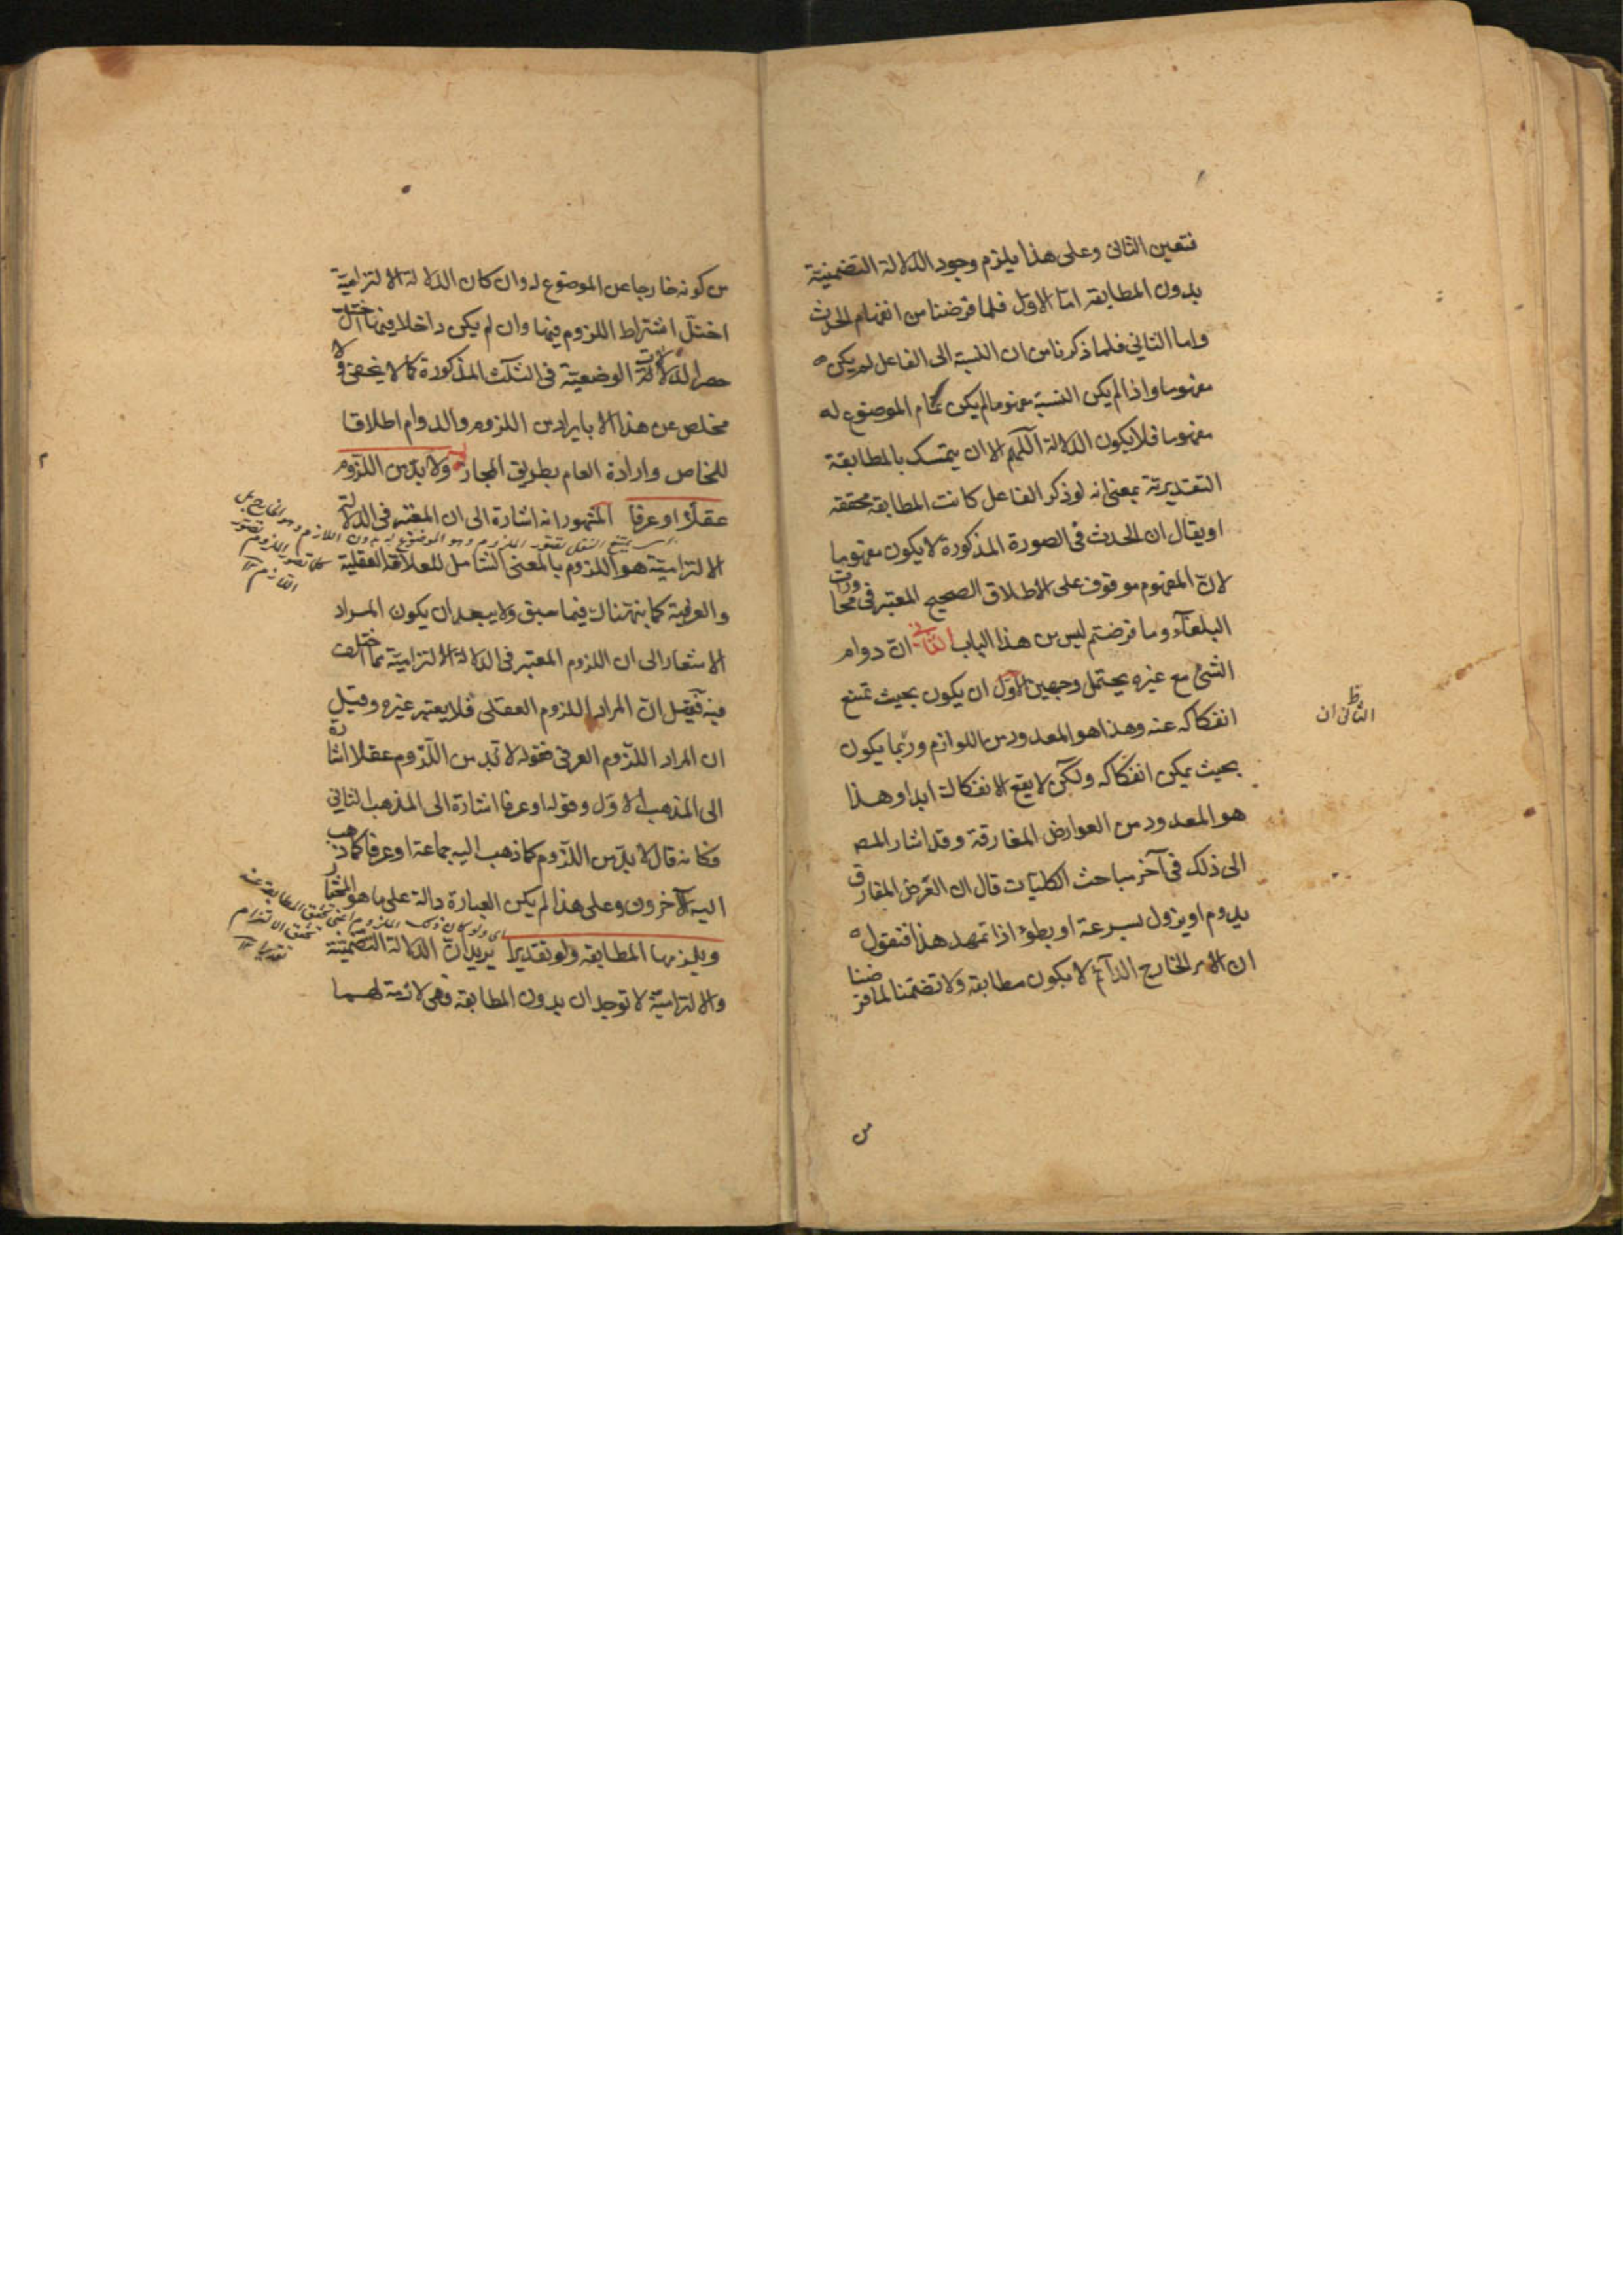 فتعين الثانى وعلى هذا يلزم وجود الدلالة التضمنية
بدون المطابقه امّا الاوّل فلما فرضنا من انفهام الحدث
واما الثانى فلما ذكرنا من ان النسبة الى الفاعل لم يكن
مفهوما واذا لم يكن النسبة مفهوما لم يكن تمام الموضوع له
مفهوما فلا يكون الدلالة اللّهم الا ان يتمسك بالمطابقة
التقديرية بمعنى انه لو ذكر الفاعل كانت المطابقة محققه
او يقال ان الحدث فى الصورة المذكورة لا يكون مفهوما
لانّ المفهوم موقوف على الاطلاق الصحيح المعتبر فى محاورات
البلغآء وما فرضتم ليس من هذا الباب الثانى انّ دوام
الشئ مع غيره يحتمل وجهين الاوّل ان يكون بحيث تمتنع
انفكاكه عنه وهذا هو المعدود من اللوازم وربّما يكون
بحيث يمكن انفكاكه ولكن لا يقع الانفكاك ابدا وهذا
هو المعدود من العوارض المفارقة وقد اشار المص
الى ذلك فى آخر مباحث الكليات قال ان العرض المفارق
يدوم او يزول بسرعة او بطؤ اذا تمهد هذا فنقول
ان الامر الخارج الدآئم لا يكون مطابقة ولا تضمّنا لما فرضنا
من
الثانى ان
من كونه خارجا عن الموضوع له وان كان الدلالة الالتزامية
اختلّ اشتراط اللزوم فيها وان لم يكن داخلا فيها اختلّ
حصر الدلالات الوضعية فى الثلث المذكورة كما لا يخفى ولا
مخلص عن هذا الا بايراد من اللزوم والدوام اطلاقا
للخاص وارادة العام بطريق المجاز ولا بدّ من اللزوم
عقلاً او عرفا المشهور انه اشارة الى ان المعتبر فى الدلالة
الالتزامية هو اللزوم بالمعنى الشامل للعلاقة العقلية
والعرفية كما بنهناك فيما سبق ولا يبعد ان يكون المراد
الاشعار الى ان اللزوم المعتبر فى الدلالة الالتزامية مما اختلف
فيه فقيل انّ المراد اللزوم العقلى فلا يعتبر غيره وقيل
ان المراد اللزوم العرفى فقوله لا بد من اللزوم عقلا اشارة
الى المذهب الاوّل وقوله او عرفا اشارة الى المذهب الثانى
فكانه قال لا بدّ من اللزوم كما ذهب اليه جماعة او عرفا كما ذهب
اليه الآخرون وعلى هذا لم يكن العبارة دالة على ما هو المختار
ويلزمها المطابقه ولو تقديرا يريد انّ الدلالة التضمّنية
والالتزامية لا توجدان بدون المطابقة وهى لازمة لهما